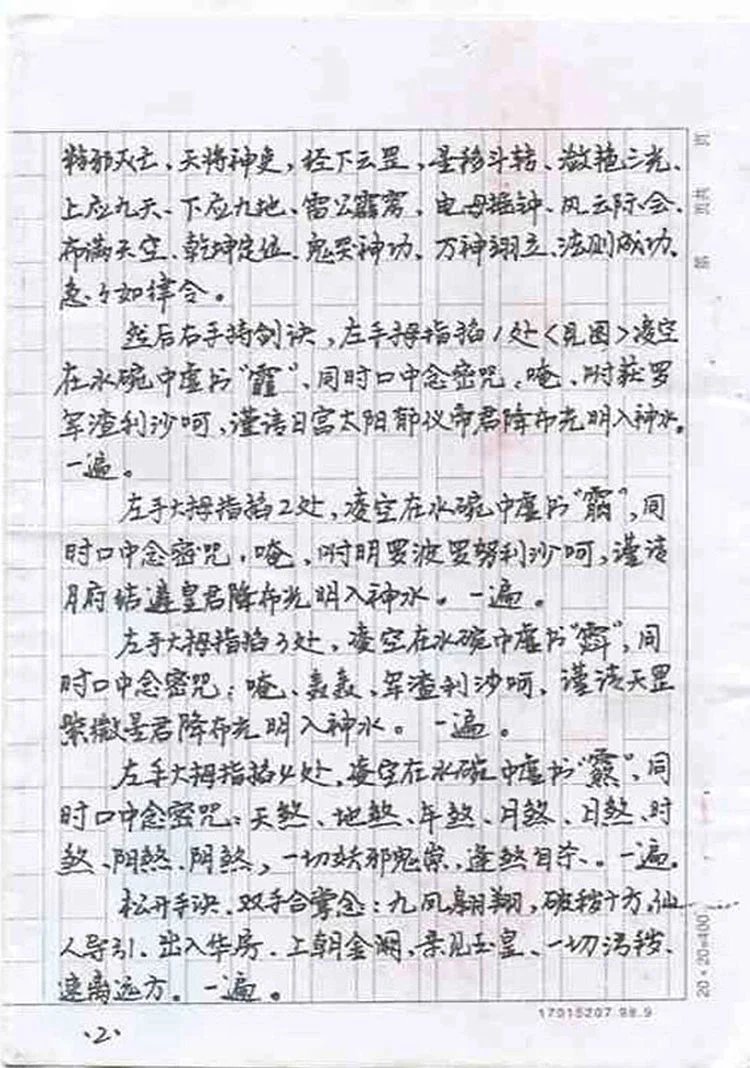 精邪灭亡、天将神吏,径下云罡,星移斗转、激艳三光、
上应九天、下应九地、雷公霹雳,电母摇钟、风云际会、
布满天空、乾坤定位、鬼哭神功、万神翊立、法则成功、
急々如律令。
然后右手持剑诀,左手拇指掐1处<见图>凌空
在水碗中虚书“䨺”、同时口中念密咒:唵、咐获罗
军渣利沙呵,谨请日宫太阳郁仪帝君降布光明入神水。
一遍。
左手大拇指掐2处,凌空在水碗中虚书“”,同
时口中念密咒,唵、咐明罗波罗努利沙呵,谨请
月府结遴皇君降布光明入神水。一遍。
左手大拇指掐3处,凌空在水碗中虚书“”,同
时口中念密咒:唵、轰轰、军渣利沙呵,谨请天罡
紫微星君降布光明入神水。一遍。
左手大拇指掐4处,凌空在水碗中虚书“”,同
时口中念密咒:天煞、地煞、年煞、月煞、日煞、时
煞、阴煞、阴煞,一切妖邪鬼祟,逢煞自杀、。一遍。
松开手诀、双手合掌念:九凤翱翔,破秽十方,仙
人导引、出入华房、上朝金阙,亲见玉皇、一切污秽、
速离远方。一遍。
·2·
17015207.98.9
20×20=400
第 页共 页